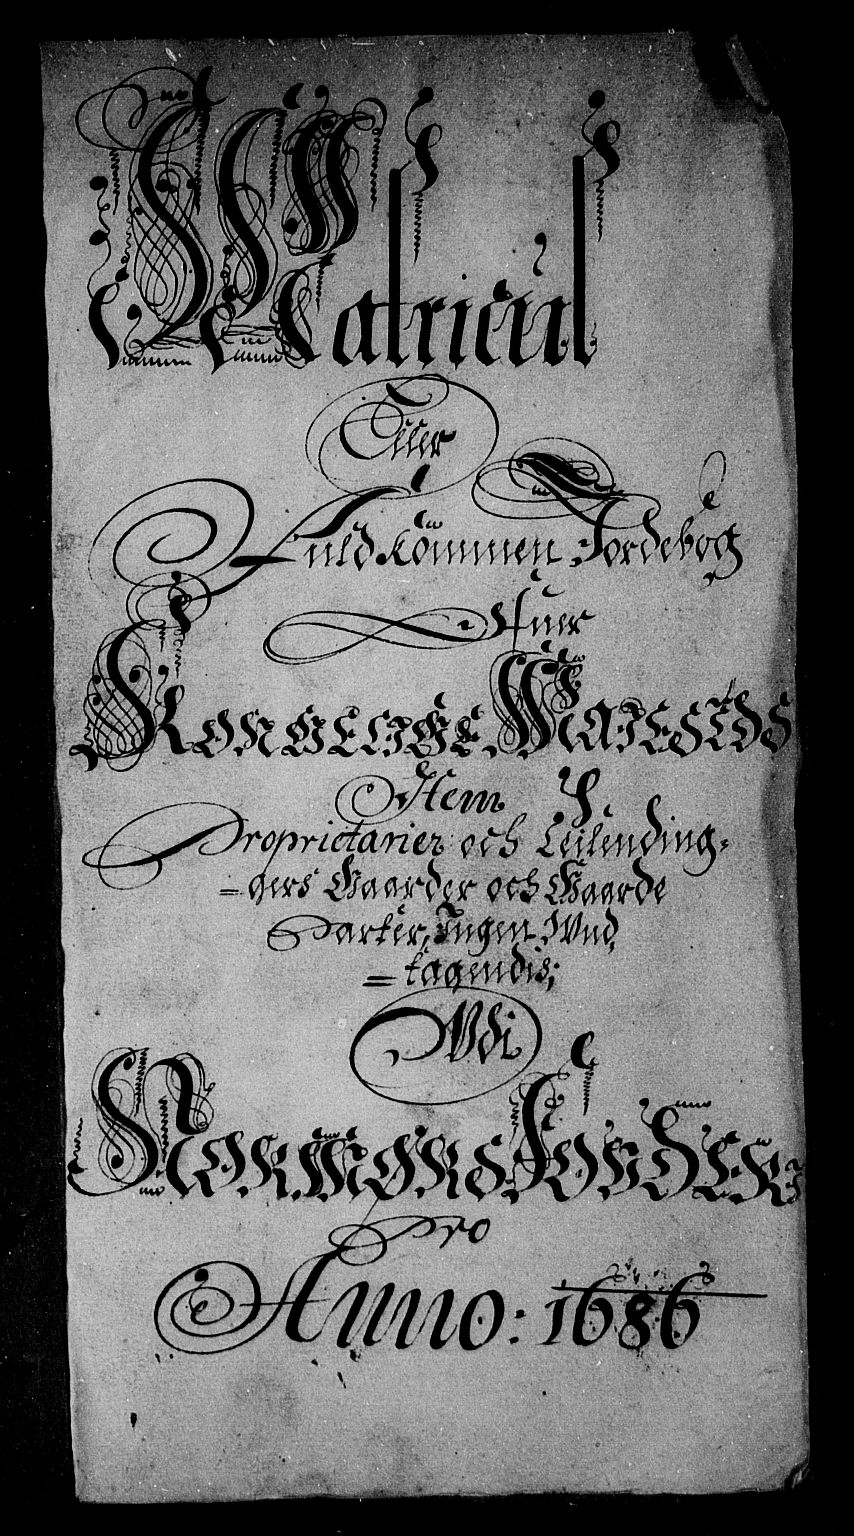 Matricul
Eller
Fuldkommen Jordebog
Ofuer
Kongelige Maiestds
Item
Proprietarier och Leilending-
=gers Gaarder och Gaarde
Parter, Ingen Und,
=tagendis;
Udi
Normørs Fogderi
Pro
Anno: 1686